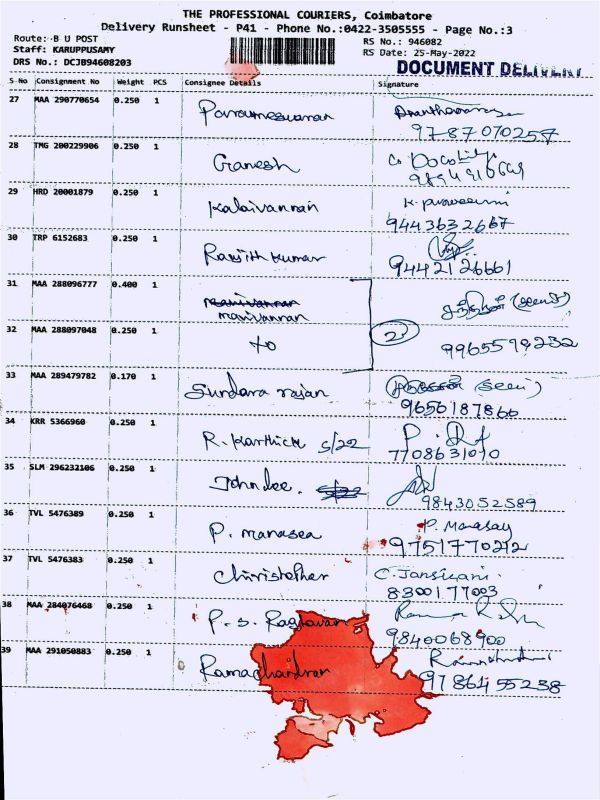 THE PROFESSIONAL COURIERS, Coimbatore
Delivery Runsheet - P41 - Phone No.:0422-3505555 - Page No.:3
Route: B U POST RS No.: 946082
Staff: KARUPPUSAMY RS Date: 25-May-2022
DRS No.: DCJB94608203 DOCUMENT DELIVERY
S No Consignment No Weight PCS Consignee Details Signature
27 MAA 290770654 0.250 1 Parameswaran
9787070257
28 TMG 200229906 0.250 1 Ganesh
29 HRD 20001879 0.250 1 Kalaivannan K. praveeni
9443632667
30 TRP 6152683 0.250 1 Ranjith kumar
9442126661
31 MAA 288096777 0.400 1 manivannan
manivannan
32 MAA 288097048 0.250 1 2
9965594232
33 MAA 289479782 0.170 1 Sundara rajan (Seal)
9656187866
34 KRR 5366960 0.250 1 R. Karthick 5/22
7708631010
35 SLM 296232106 0.250 1 Johndee. 5/22
9843052589
36 TVL 5476389 0.250 1 P. manasea P. Manasay
9751770212
37 TVL 5476383 0.250 1 Christopher C. Jansirani
8300177003
38 MAA 284076468 0.250 1 P. S. Raghavan
9840068900
39 MAA 291050883 0.250 1 Ramachandran
9786455238